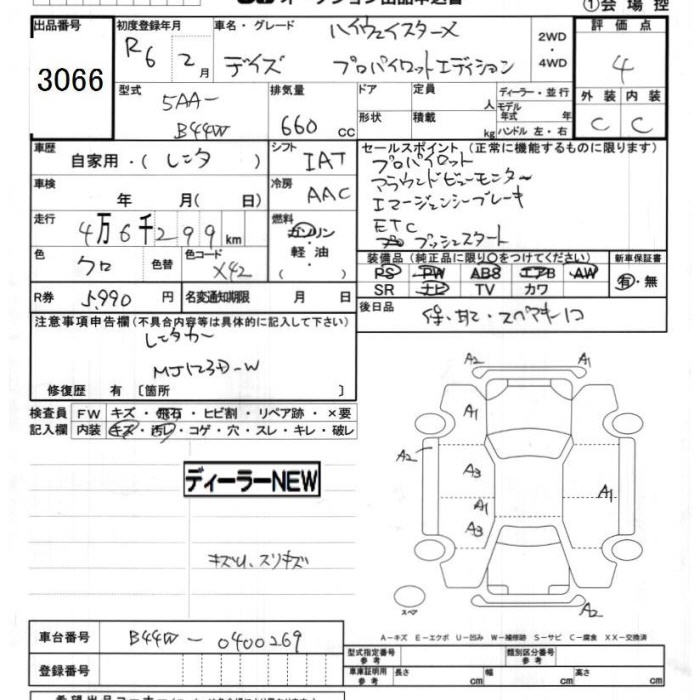 ①会場控
出品番号 3066
初度登録年月 R6 2月
車名・グレード ハイウェイスターX
デイズ プロパイロットエディション
2WD・4WD
評価点 4
外装 C 内装 C
型式 5AA-B44W
排気量 660 cc
ドア 定員 人
形状 積載 kg
ディーラー・並行
モデル年式 年
ハンドル 左・右
車歴 自家用・(レンタ)
シフト IAT
車検 年 月(日)
冷房 AAC
走行 4万6千299km
燃料 ガソリン・軽油・( )
色 クロ 色替
色コード X42
R券 5,990円
名変通知期限 月 日
セールスポイント (正常に機能するものに限ります)
プロパイロット
アラウンドビューモニター
エマージェンシーブレーキ
ETC
プッシュスタート
装備品 (純正品に限り○をつけてください)
PS PW ABS エアB AW
SR ナビ TV カワ
新車保証書 有・無
後日品
注意事項申告欄(不具合内容等は具体的に記入して下さい)
レンタカー
MJ123D-W
修復歴 有 〔箇所 〕
検査員記入欄
FW キズ・飛石・ヒビ割・リペア跡・×要
内装 キズ・汚レ・コゲ・穴・スレ・キレ・破レ
ディーラーNEW
キズU、スリキズ
A2 A1
A1
A2 A3
A1 A1
A3
A2
スペア
A-キズ E-エクボ U-凹み W-補修跡 S-サビ C-腐食 XX-交換済
車台番号 B44W-0400269
登録番号
型式指定番号 参考 類別区分番号 参考
車庫証明用 参考 長さ cm 幅 cm 高さ cm